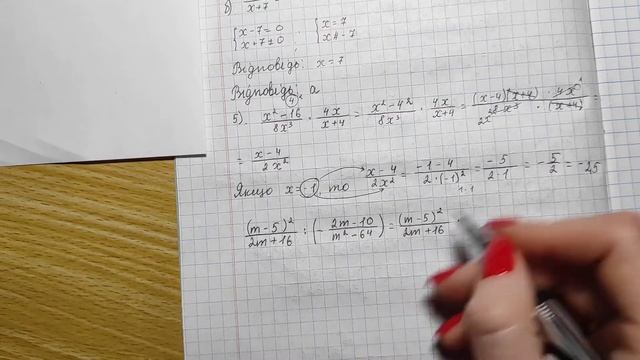 б) x+7
{x-7=0 {x=7
{x+7≠0 ; {x≠-7
Відповідь: x=7
Відповідь: а
5) (x²-16)/(8x³) · 4x/(x+4) = (x²-4²)/(8x³) · 4x/(x+4) = ((x-4)(x+4) · 4x)/(8x³ · (x+4)) =
= (x-4)/(2x²)
Якщо x=-1, то (x-4)/(2x²) = (-1-4)/(2·(-1)²) = (-5)/(2·1) = -5/2 = -2,5
(m-5)²/(2m+16) : (-(2m-10)/(m²-64)) = (m-5)²/(2m+16) ·